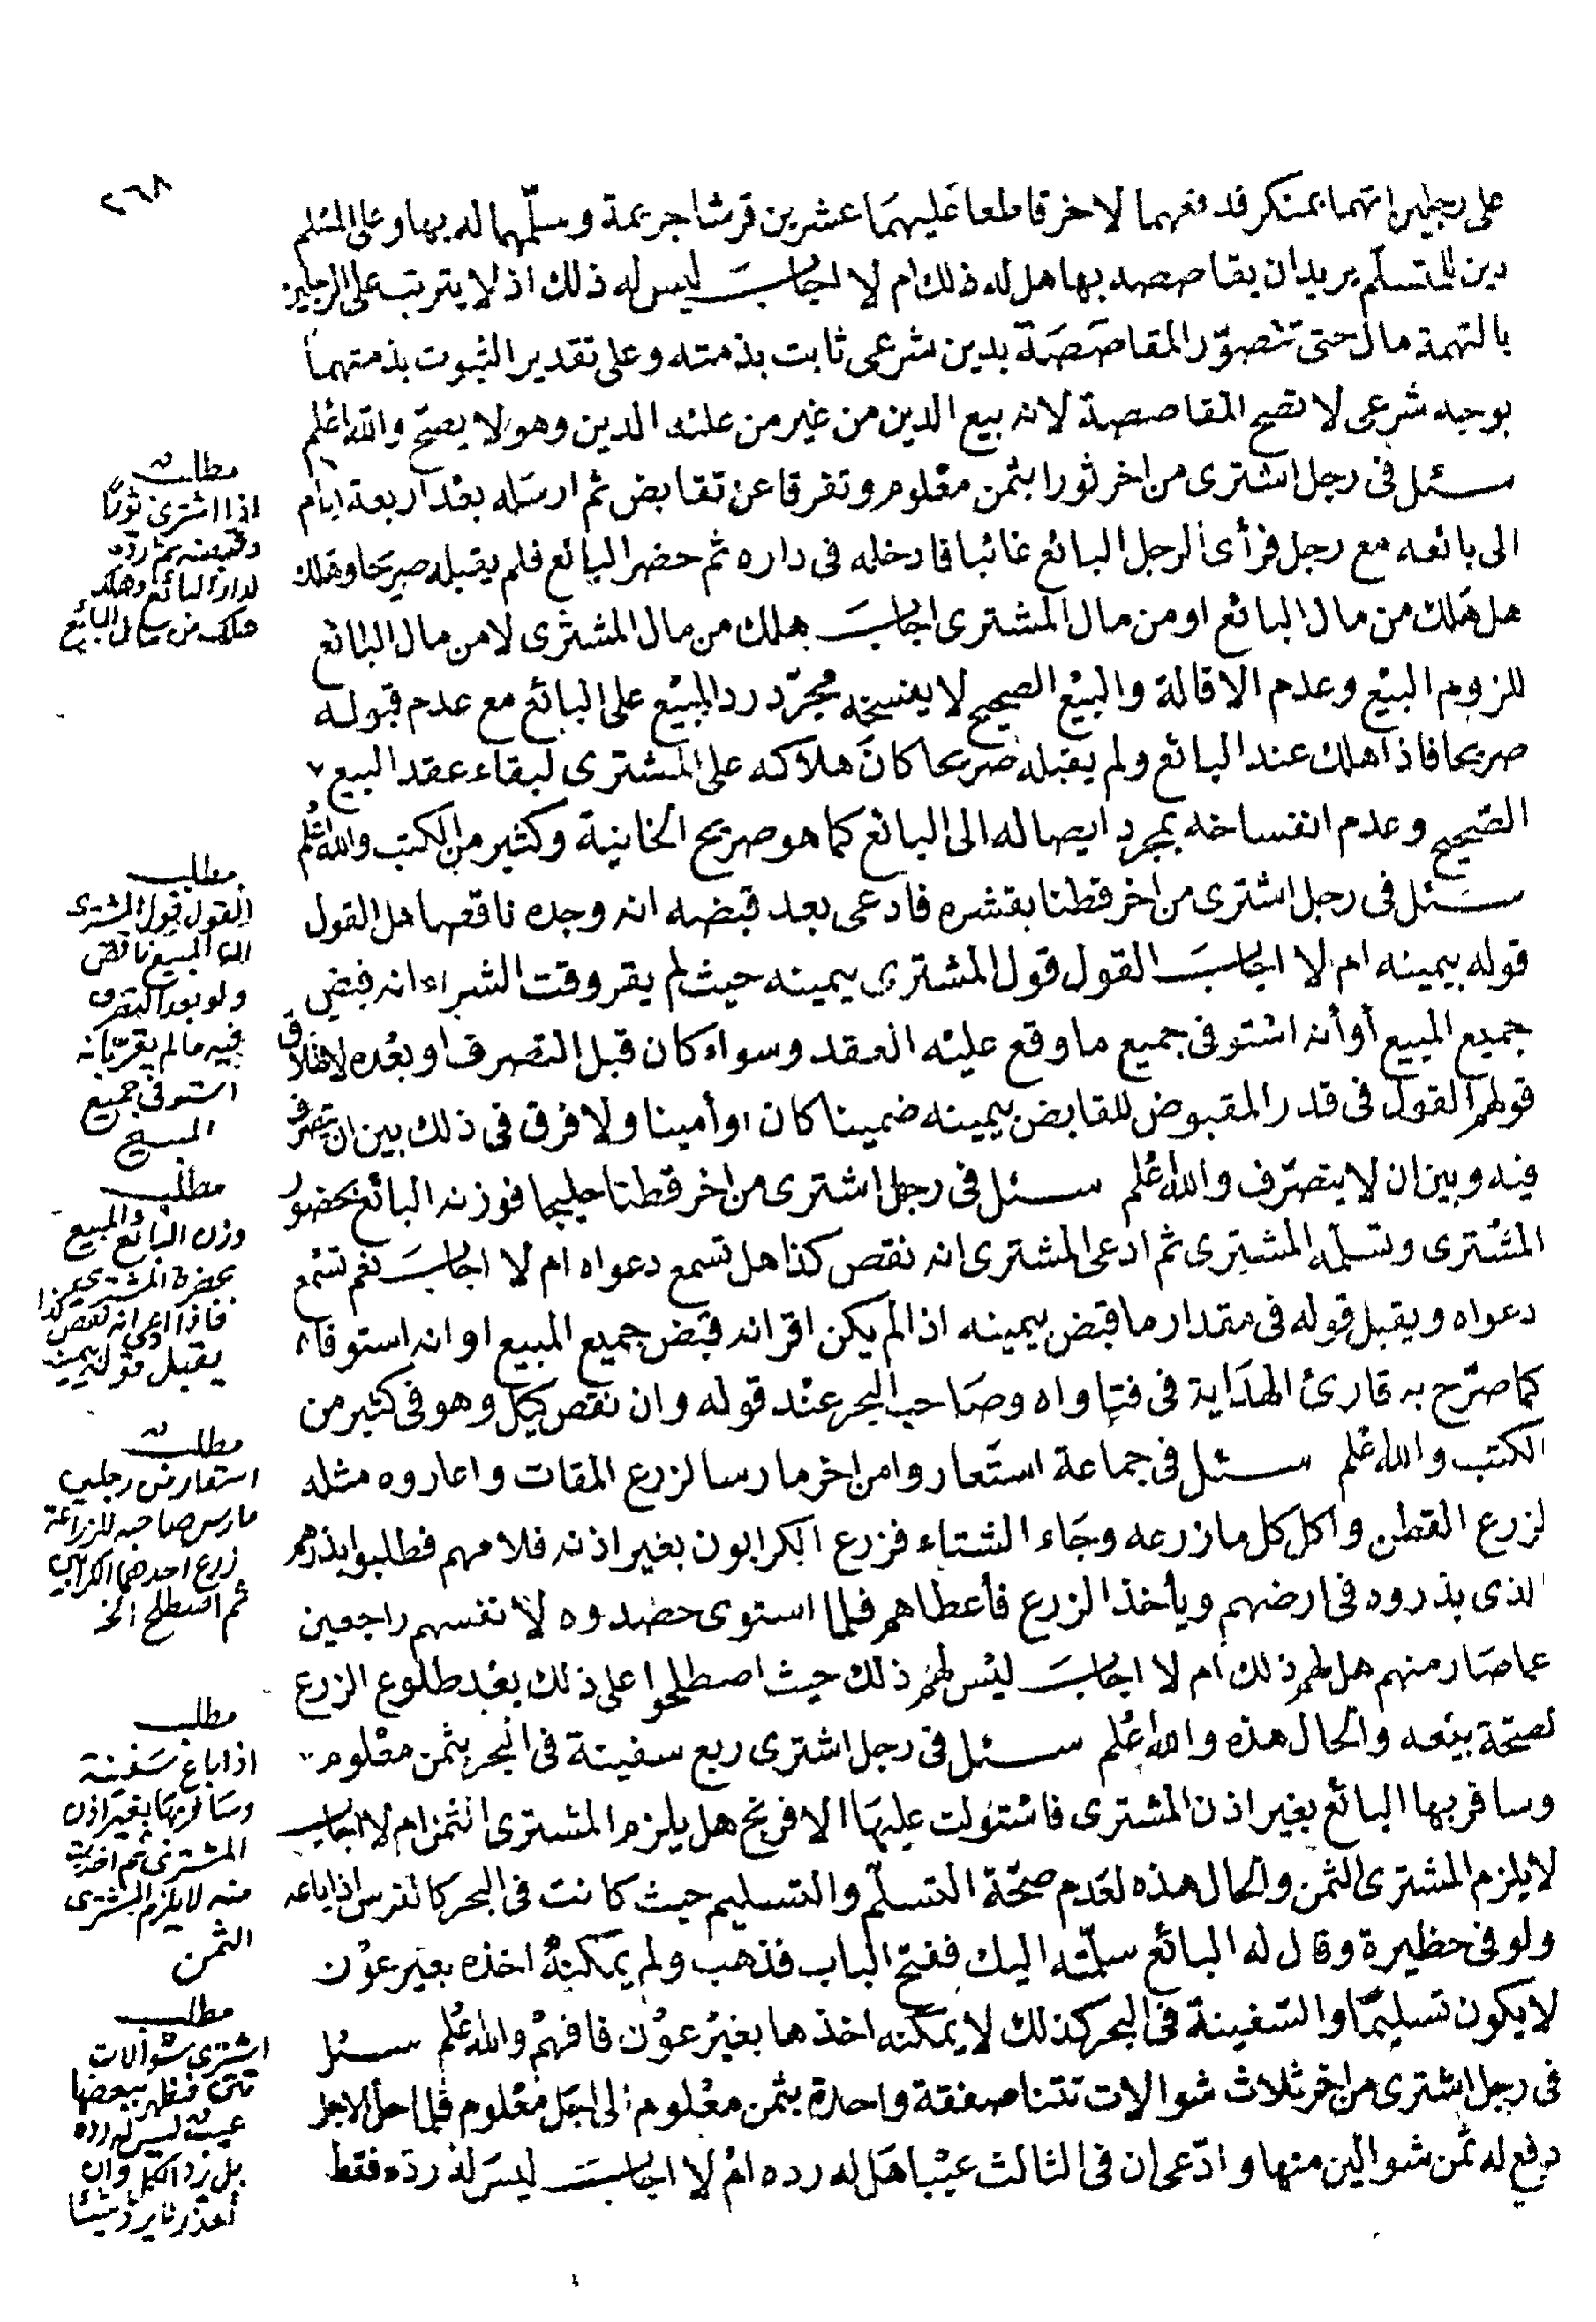 ٢٦٨
على رجلين اتهما بمنكر فدفعهما لاخر قاطعا عليهما عشرين قرشا جريمة وسلمهما له بها وعلى المسلم
دين للمتسلم يريد ان يقاصصه بها هل له ذلك ام لا اجاب ليس له ذلك اذ لا يترتب على الرجلين
بالتهمة مال حتى تتصوّر المقاصصة بدين شرعى ثابت بذمته وعلى تقدير الثبوت بذمتهما
بوجه شرعى لا تصح المقاصصة لانه بيع الدين من غير من عليه الدين وهو لا يصح والله اعلم
سئل فى رجل اشترى من اخر ثورا بثمن معلوم وتفرقا عن تقابض ثم ارسله بعد اربعة ايام
الى بائعه مع رجل فرأى الرجل البائع غائبا فادخله فى داره ثم حضر البائع فلم يقبله صريحا وهلك
هل هلك من مال البائع او من مال المشترى اجاب هلك من مال المشترى لا من مال البائع
للزوم البيع وعدم الاقالة والبيع الصحيح لا يفسخه مجرّد رد المبيع على البائع مع عدم قبوله
صريحا فاذا هلك عند البائع ولم يقبله صريحا كان هلاكه على المشترى لبقاء عقد البيع
الصحيح وعدم انفساخه بمجرد ايصاله الى البائع كما هو صريح الخانية وكثير من الكتب والله اعلم
سئل فى رجل اشترى من اخر قطنا بقشره فادعى بعد قبضه انه وجده ناقصا هل القول
قوله بيمينه ام لا اجاب القول قول المشترى بيمينه حيث لم يقر وقت الشراء انه قبض
جميع المبيع أو أنه استوفى جميع ما وقع عليه العقد وسواء كان قبل التصرف او بعده لاطلاق
قولهم القول فى قدر المقبوض للقابض بيمينه ضمينا كان او أمينا ولا فرق فى ذلك بين ان يتصرف
فيه وبين ان لا يتصرّف والله اعلم سئل فى رجل اشترى من اخر قطنا حليجا فوزنه البائع بحضور
المشترى وتسلمه المشترى ثم ادعى المشترى انه نقص كذا هل تسمع دعواه ام لا اجاب نعم تسمع
دعواه ويقبل قوله فى مقدار ما قبض بيمينه اذا لم يكن اقر انه قبض جميع المبيع او انه استوفاء
كما صرّح به قارئ الهداية فى فتاواه وصاحب البحر عند قوله وان نقص كيل وهو فى كثير من
الكتب والله اعلم سئل فى جماعة استعاروا من اخر مارسا لزرع المقات واعاروه مثله
لزرع القطن واكل كل ما زرعه وجاء الشتاء فزرع الكرابون بغير اذنه فلامهم فطلبوا بذرهم
الذى بذروه فى ارضهم ويأخذ الزرع فأعطاهم فلما استوى حصدوه لانفسهم راجعين
عما صار منهم هل لهم ذلك ام لا اجاب ليس لهم ذلك حيث اصطلحوا على ذلك بعد طلوع الزرع
لصحة بيعه والحال هذه والله اعلم سئل فى رجل اشترى ربع سفينة فى البحر بثمن معلوم
وسافر بها البائع بغير اذن المشترى فاستولت عليها الافرنج هل يلزم المشترى الثمن ام لا اجاب
لا يلزم المشترى الثمن والحال هذه لعدم صحة التسلّم والتسليم حيث كانت فى البحر كالفرس اذا باعه
ولو فى حظيرة وقال له البائع سلمته اليك ففتح الباب فذهب ولم يمكنه اخذه بغير عون
لا يكون تسليما والسفينة فى البحر كذلك لا يمكنه اخذها بغير عون فافهم والله اعلم سئل
فى رجل اشترى من اخر ثلاث شوالات تتنا صفقة واحدة بثمن معلوم الى اجل معلوم فلما حل الاجل
دفع له ثمن شوالين منها وادّعى ان فى الثالث عيبا هل له رده ام لا اجاب ليس له ردّه فقط
مطلب
اذا اشترى ثورا
وقبضه ثم ردّه
لدار البائع وهلك
هلك من مال البائع
مطلب
القول قول المشترى
ان المبيع ناقص
ولو بعد التصرف
فيه ما لم يقر بانه
استوفى جميع
المبيع
مطلب
وزن البائع المبيع
بحضرة المشترى
فاذا ادعى انه نقص كذا
يقبل قوله بيمينه
مطلب
استعار من رجلين
مارس صاحبه للزراعة
زرع احدهما الكرابين
ثم اصطلح الخ
مطلب
اذا باع سفينة
وسافر بها بغير اذن
المشترى ثم اخذت
منه لا يلزم المشترى
الثمن
مطلب
اشترى شوالات
تتن فظهر ببعضها
عيب ليس له رده
بل يرد الكل وان
تعذر لا يرد شيئا